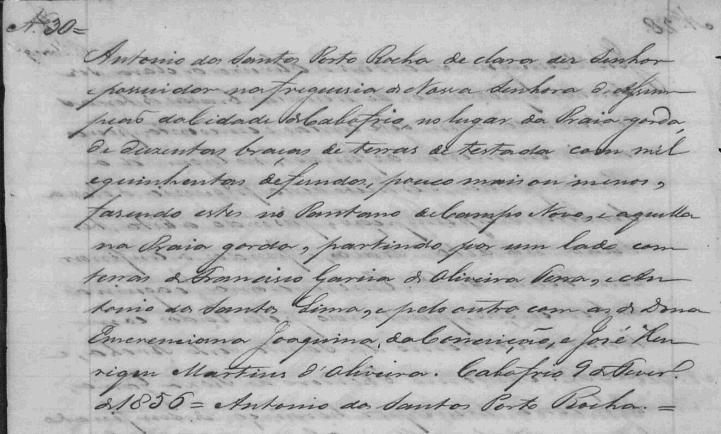 N. 30=
Antonio dos Santos Porto Rocha de clara ser Senhor
e possuidor na freguesia de Nossa Senhora d'Assum-
pção da Cidade de Cabofrio, no lugar da Praia gorda,
de duzentas braças de terras de testada com mil
equinhentas defundos, pouco mais ou menos,
fasendo estes no Pantano de Campo Novo, e aquella
na Praia gorda, partindo por um lado com
terras de Francisco Garcia de Oliveira Penna, e An-
tonio dos Santos Lima, e pelo outro com as de Dona
Emerenciana Joaquina da Conceição, e José Hen-
riques Martins d'Oliveira. Cabofrio 9 de Feverº
de 1856 = Antonio dos Santos Porto Rocha. =